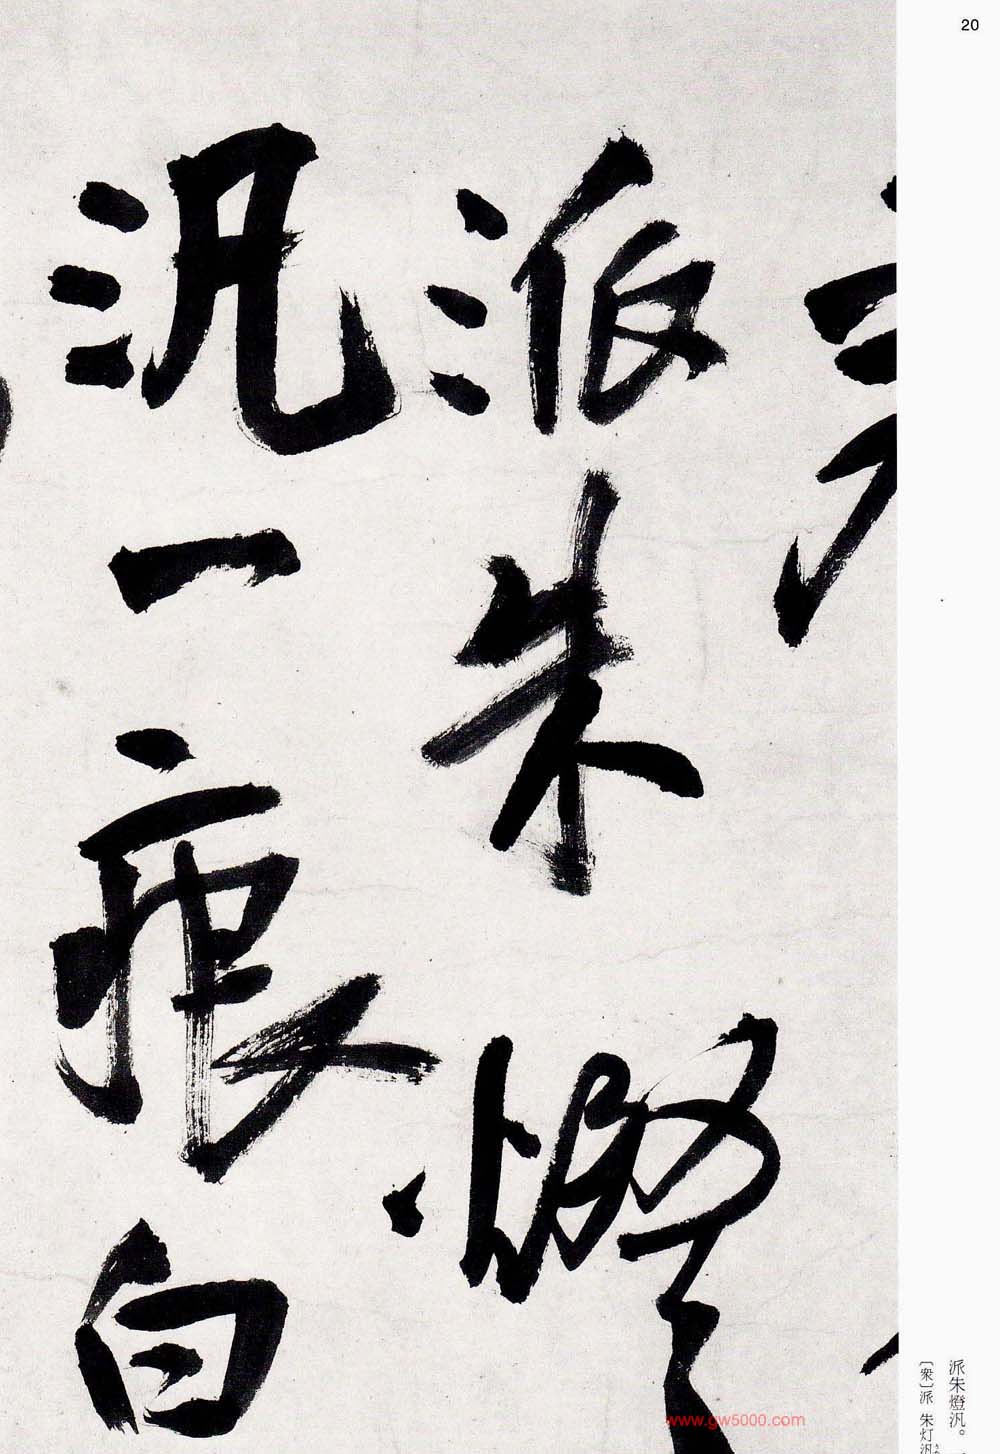 20
派朱燈
汎一痕白
派朱燈汎。
〔衆〕派 朱灯汎
www.gw5000.com